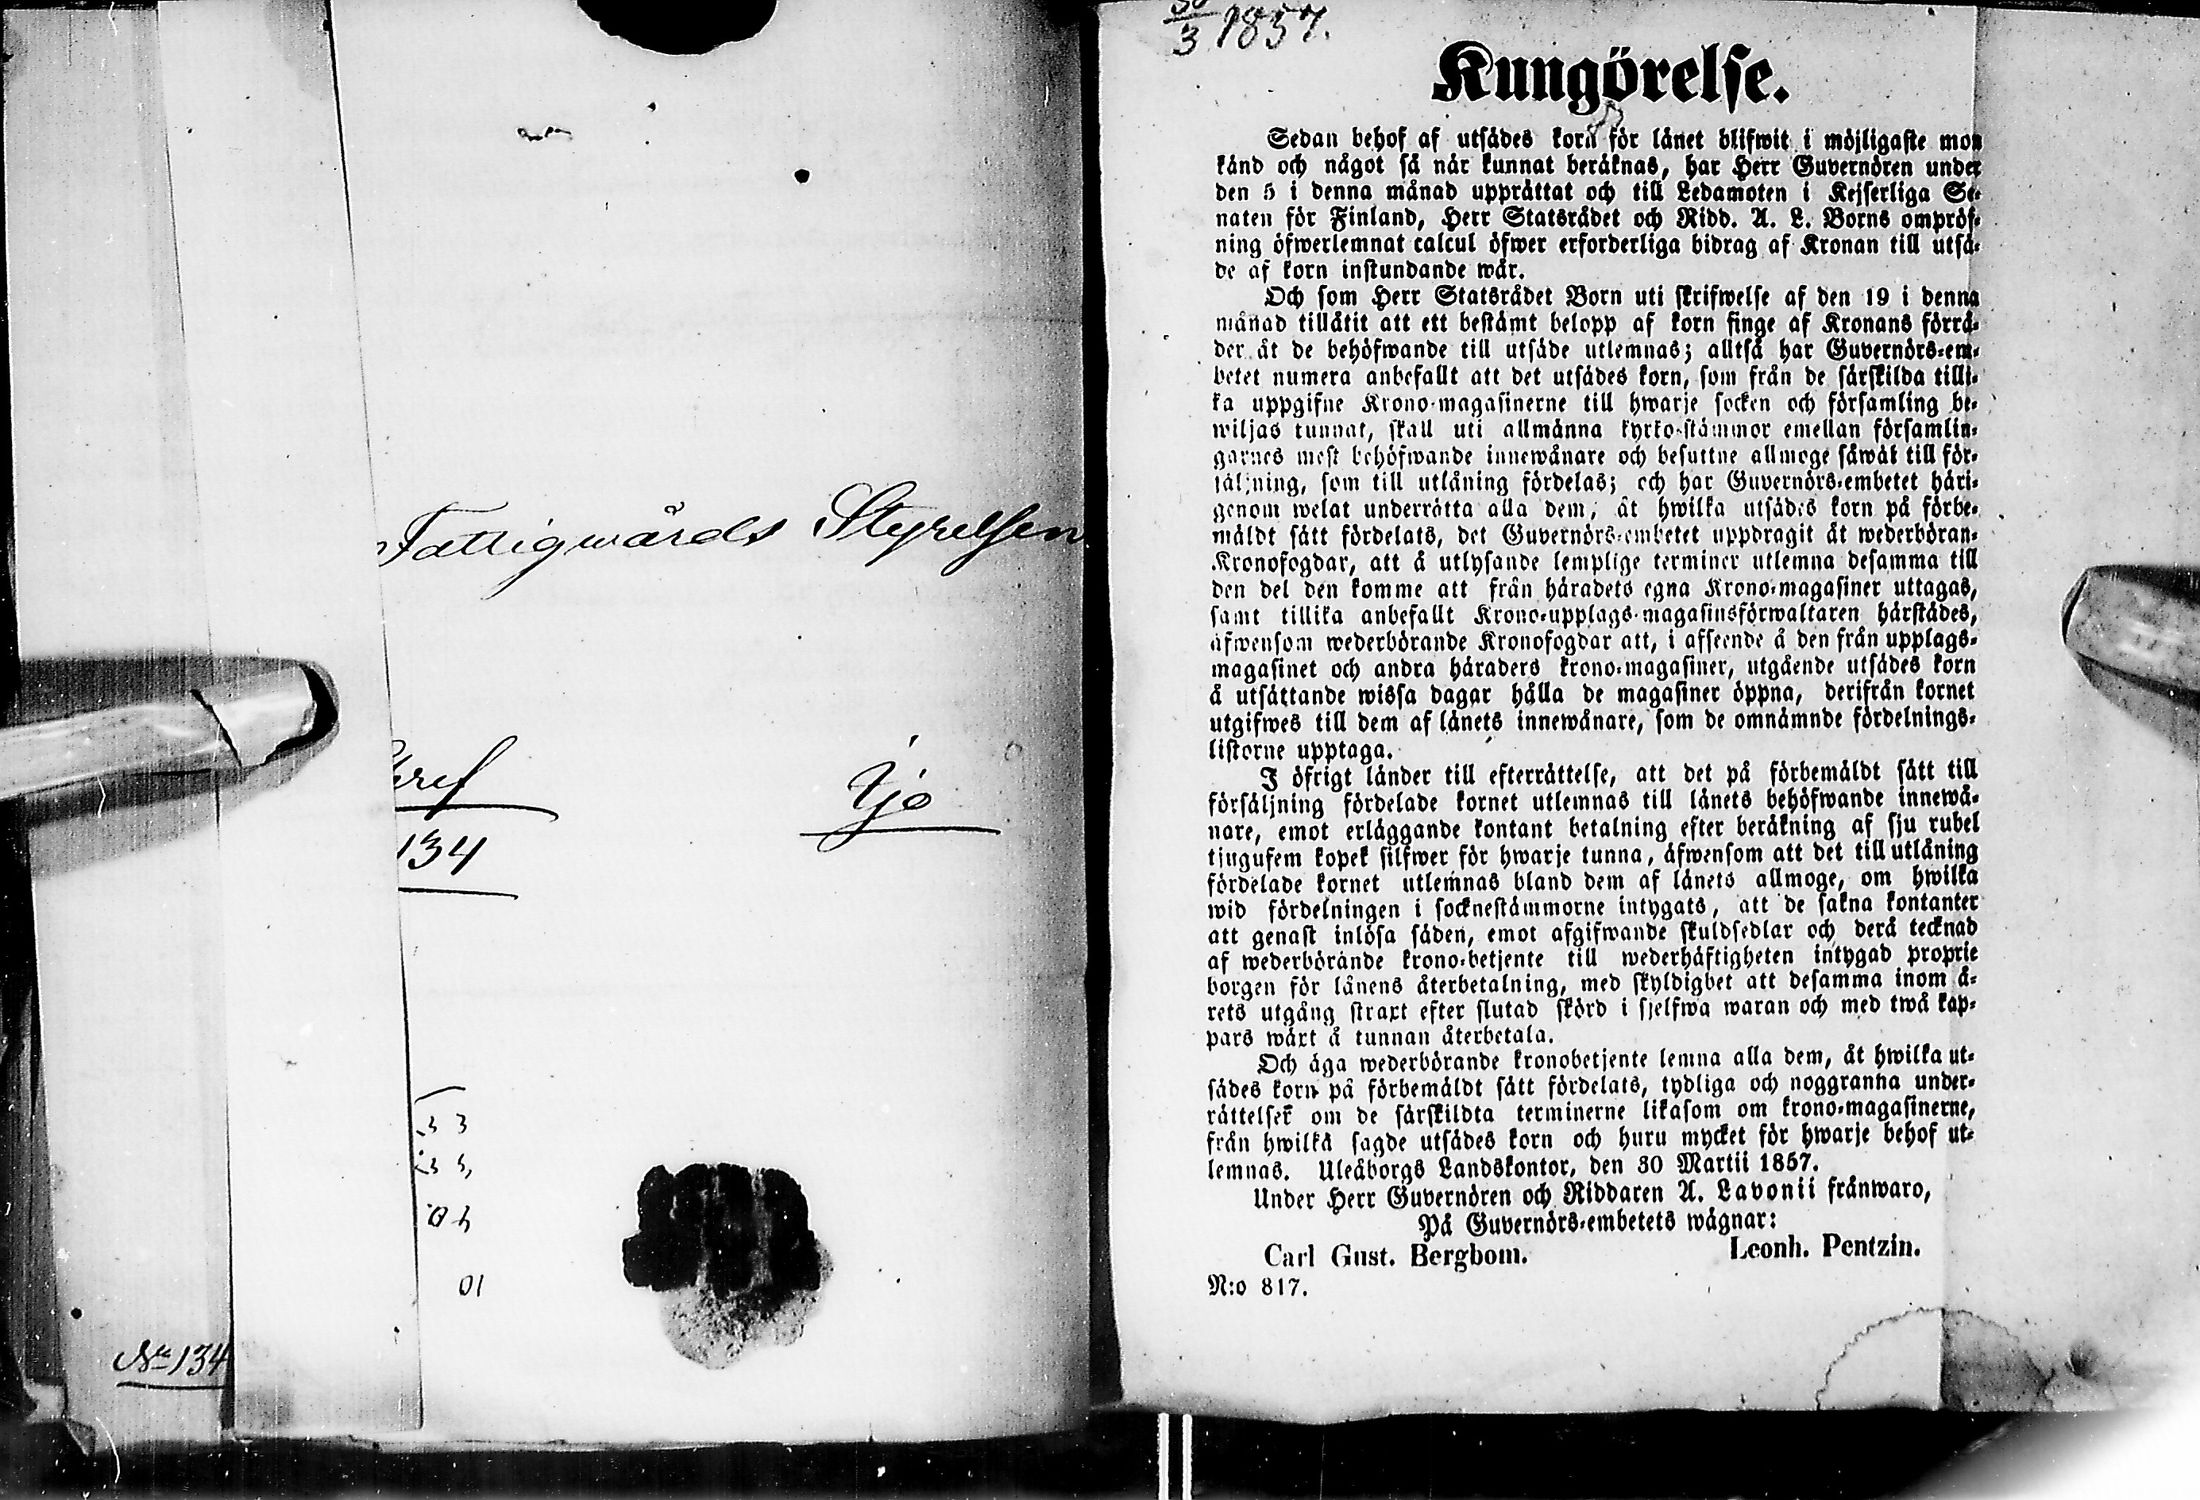 Fattigwårds Styrelsen
Ijo
134
10
No 134
30/3 1857.
Kungörelse.
Sedan behof af utsädes korn för länet blifwit i möjligaste mon
känd och något så när kunnat beräknas, har Herr Guvernören under
den 5 i denna månad upprättat och till Ledamoten i Kejserliga Se-
naten för Finland, Herr Statsrådet och Ridd. A. L. Borns ompröf-
ning öfwerlemnat calcul öfwer erforderliga bidrag af Kronan till utsä-
de af korn instundande wår.
Och som Herr Statsrådet Born uti skrifwelse af den 19 i denna
månad tillåtit att ett bestämt belopp af korn finge af Kronans förrå-
der åt de behöfwande till utsäde utlemnas; alltså har Guvernörs-em-
betet numera anbefallt att det utsädes korn, som från de särskilda tilli-
ka uppgifne Krono-magasinerne till hwarje socken och församling be-
wiljas tunnat, skall uti allmänna kyrko-stämmor emellan församlin-
garnes mest behöfwande innewånare och besuttne allmoge såwäl till för-
säljning, som till utlåning fördelas; och har Guvernörs-embetet häri-
genom welat underrätta alla dem, åt hwilka utsädes korn på förbe-
mäldt sätt fördelats, det Guvernörs-embetet uppdragit åt wederböran-
Kronofogdar, att å utlysande lemplige terminer utlemna desamma till
den del den komme att från häradets egna Krono-magasiner uttagas,
samt tillika anbefallt Krono-upplags-magasinsförwaltaren härstädes,
äfwensom wederbörande Kronofogdar att, i afseende å den från upplags-
magasinet och andra häraders krono-magasiner, utgående utsädes korn
å utsättande wissa dagar hålla de magasiner öppna, derifrån kornet
utgifwes till dem af länets innewånare, som de omnämnde fördelnings-
listorne upptaga.
I öfrigt länder till efterrättelse, att det på förbemäldt sätt till
försäljning fördelade kornet utlemnas till länets behöfwande innewå-
nare, emot erläggande kontant betalning efter beräkning af sju rubel
tjugufem kopek silfwer för hwarje tunna, äfwensom att det till utlåning
fördelade kornet utlemnas bland dem af länets allmoge, om hwilka
wid fördelningen i socknestämmorne intygats, att de sakna kontanter
att genast inlösa säden, emot afgifwande skuldsedlar och derå tecknad
af wederbörande krono-betjente till wederhäftigheten intygad proprie
borgen för lånens återbetalning, med skyldighet att desamma inom å-
rets utgång straxt efter slutad skörd i sjelfwa waran och med twå kap-
pars wäxt å tunnan återbetala.
Och äga wederbörande kronobetjente lemna alla dem, åt hwilka ut-
sädes korn på förbemäldt sätt fördelats, tydliga och noggranna under-
rättelser om de särskildta terminerne likasom om krono-magasinerne,
från hwilka sagde utsädes korn och huru mycket för hwarje behof ut-
lemnas. Uleåborgs Landskontor, den 30 Martii 1857.
Under Herr Guvernören och Riddaren A. Lavonii frånwaro,
På Guvernörs-embetets wägnar:
Carl Gust. Bergbom. Leonh. Pentzin.
N:o 817.